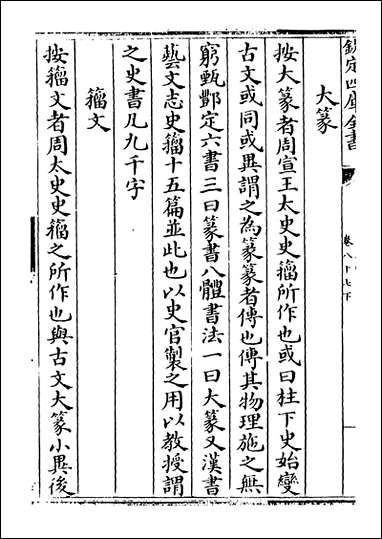 欽定四庫全書
卷八十七下
大篆
按大篆者周宣王太史史籀所作也或曰柱下史始變
古文或同或異謂之為篆篆者傳也傳其物理施之無
窮甄酆定六書三曰篆書八體書法一曰大篆又漢書
藝文志史籀十五篇並此也以史官製之用以教授謂
之史書凡九千字
籀文
按籀文者周太史史籀之所作也與古文大篆小異後